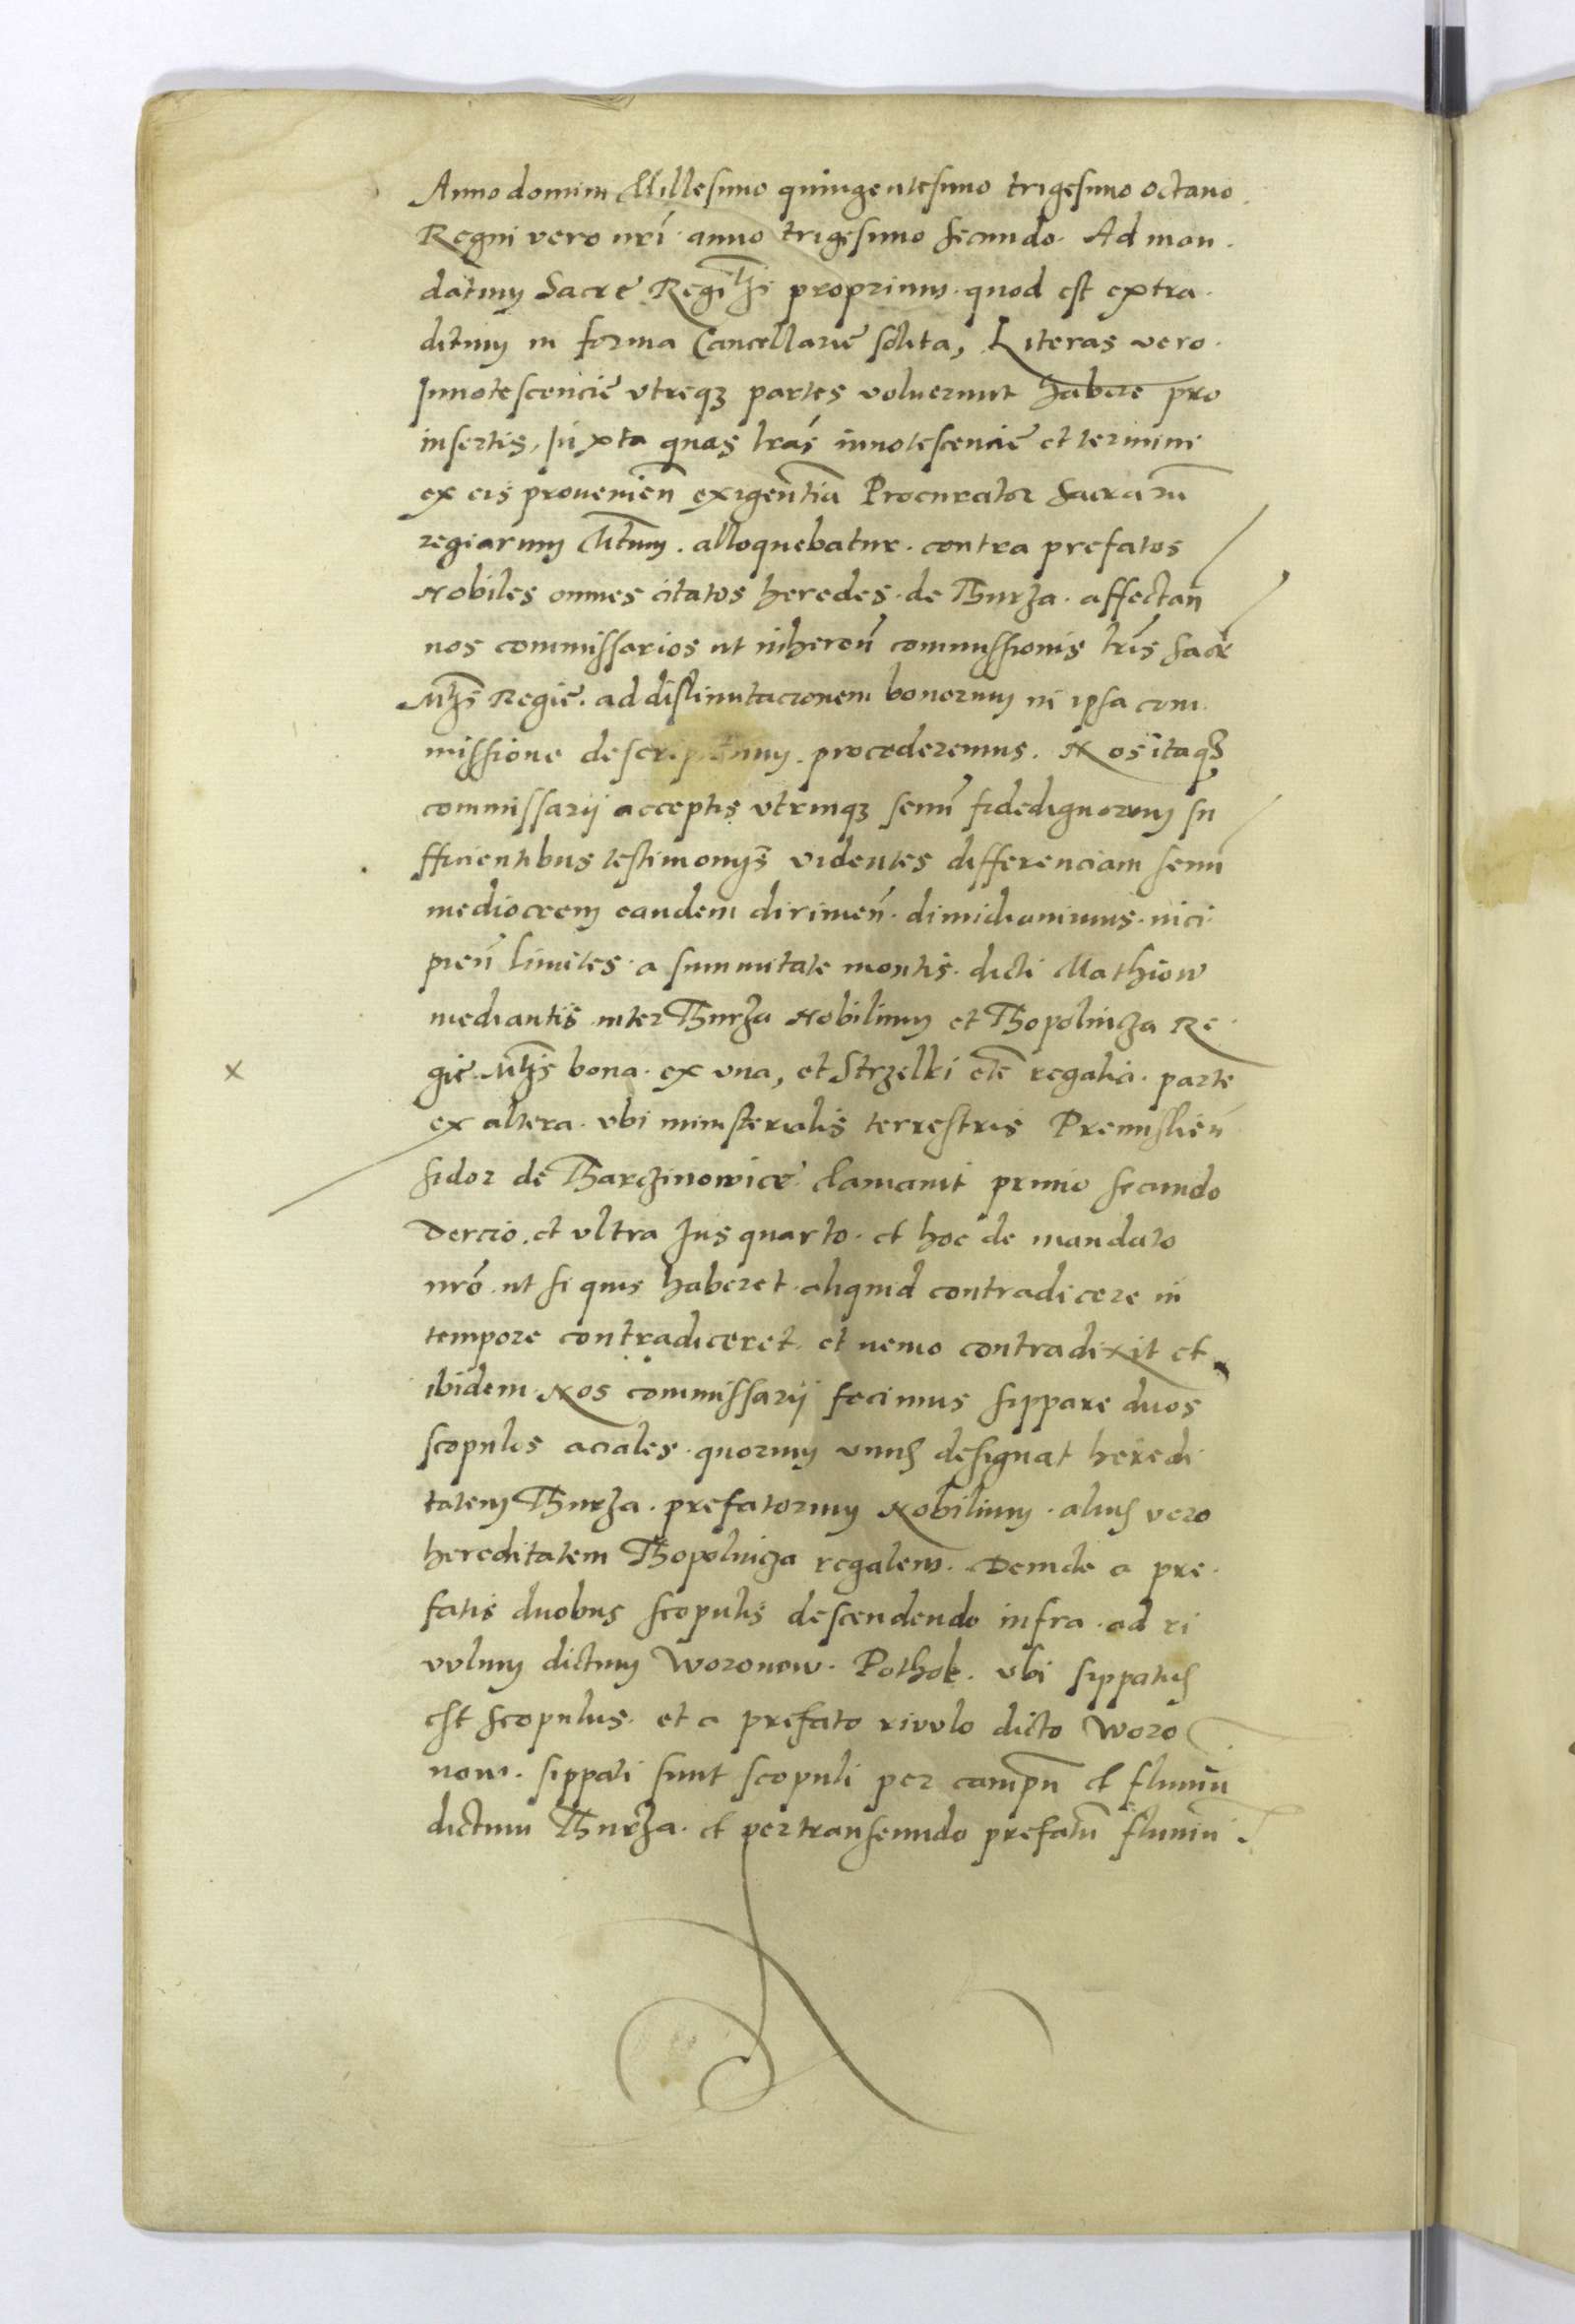 Anno domini Millesimo quingentesimo trigesimo octauo.
Regni vero nrí anno trigesimo secundo. Ad man.
datum Sacre Regi Mtj̄s proprium. quod est extra.
ditum in forma Cancellarie solita, Literas vero.
Innotescencie vtreqꝫ partes voluerunt habere pro
insertis, Iuxta quas lrás innotescencie et termini
ex eis prouenień exigentia Procurator Sacrarū
regiarum Mtum. alloquebatur. contra prefatos
Nobiles omnes citatos heredes. de Thurza. affectań
nos commissarios ut inhereń commissionis lrís sacre
Mtjs Regie. ad distinutacionem bonorum in ipsa com.
missione descriptorum. procederemus. Nos itaqꝫ
commissarij acceptis vtrinqꝫ senū fidedignorum su
fficientibus testimonijs videntes differenciam senū
mediocrem eandem dirimeń. dimidiauimus. inci.
pień limites. a summitate montis. dicti Mathiow
mediantis. inter Thurza Nobilium et Thopolnicza Re.
gie. Mtjs bona. ex vna, et Strzelki etē regalia. parte
ex altera. vbi ministerialis terrestris Premislień
Fidor de Tharczinowice. clamauit primo secundo
Tercio. et vltra Jus quarto. et hoc de mandato
nrō. ut si quis haberet. aliquid contradicere in
tempore contradiceret. et nemo contradixit et
ibidem. Nos commissarij fecimus sippare duos
scopulos aciales. quorum vnus designat heredi.
tatem Thurza. prefatorum Nobilium. alius vero
hereditatem Thopolnicza regalem. Deinde a pre.
fatis duobus scopulis descendendo infra. ad ri
vulum dictum Woronow. Pothok. vbi sippatus
est scopulus. et a prefato rivulo dicto Woro
now. sippati sunt scopuli per campū et fluuiū
dictum Thurza. et pertranseundo prefatū fluuiū.